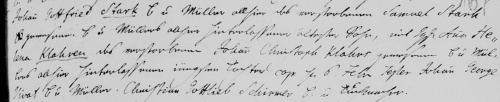 Johan Gottfried Stark B u Müller allhier des verstorbenen Samuel Stark
gewesenen B u Müllers allhier hinterlassener ältester Sohn, mit Jgfr Anna He-
lena Klahren des verstorbenen Johan Christoph Klahrs gewesenen B u Mül-
lers allhier hinterlassenen jüngsten Tochter cop. 6 Febr Johan George
B u Müller. Christian Gottlieb Schirmer B. u